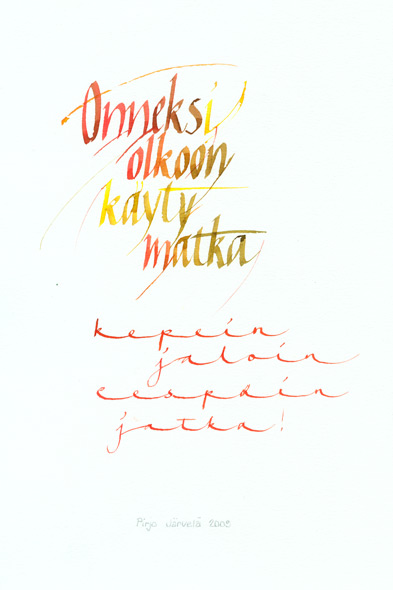 Onneksi
olkoon
käyty
matka
kepein
jaloin
eespäin
jatka!
Pirjo Järvelä 2003